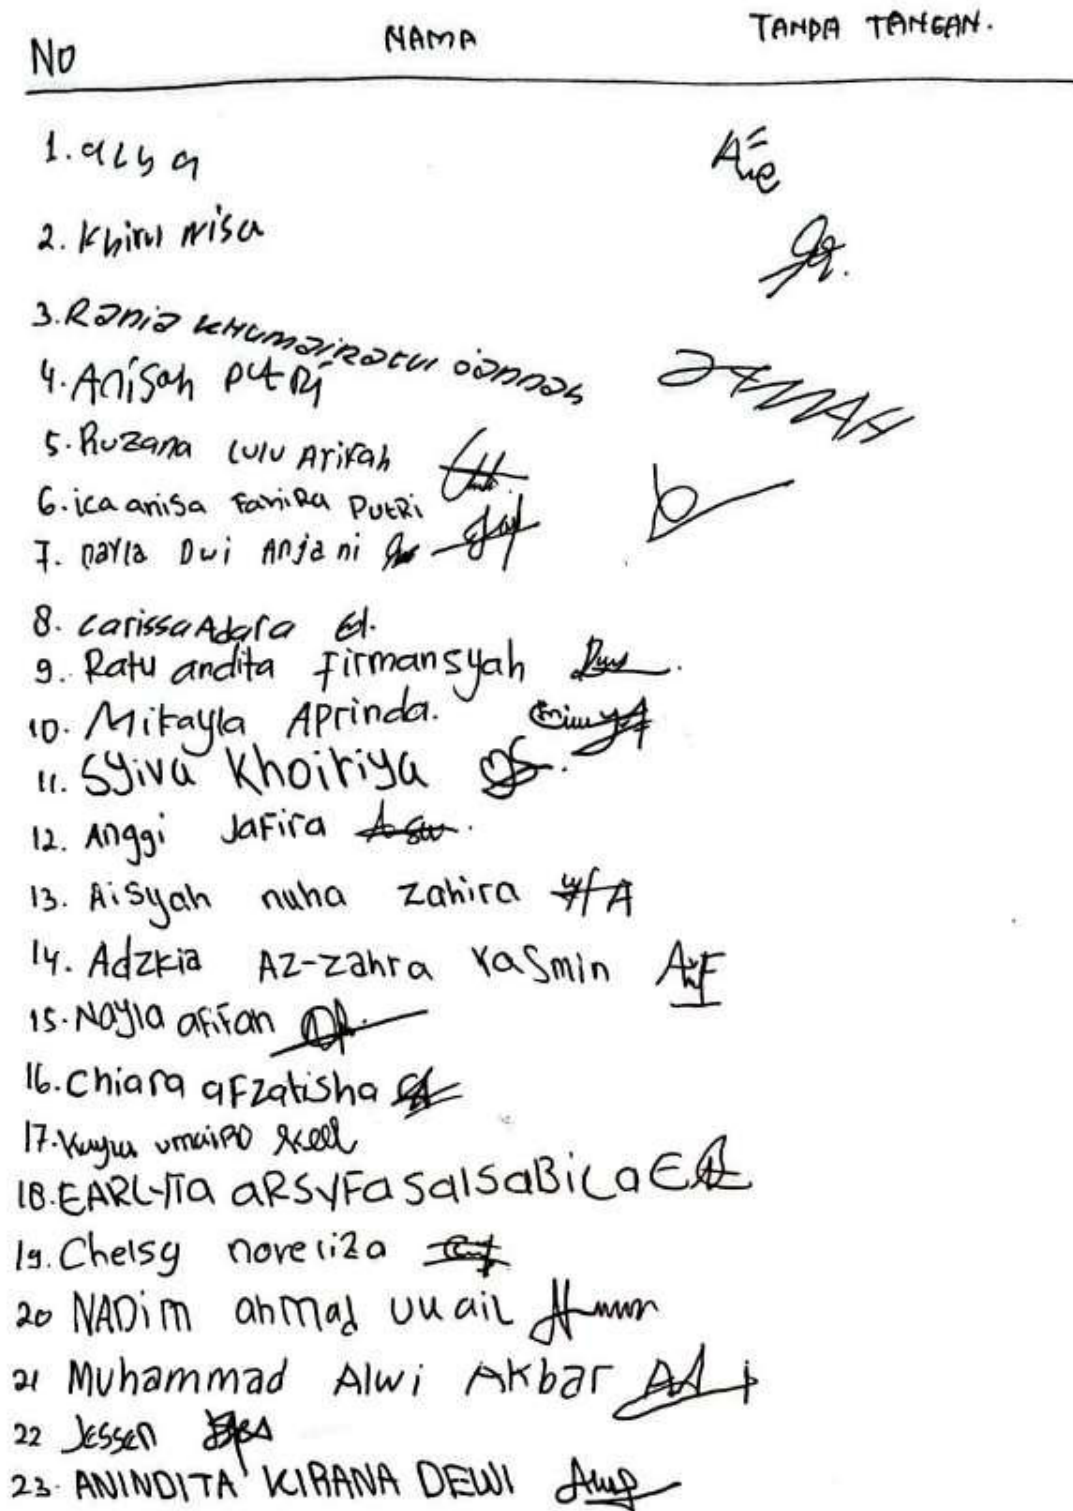 No NAMA TANDA TANGAN.
1. alya
2. Khirul Nisa
3. Rania Khumairatul Jannah
4. Anisah Putri
5. Ruzana lulu Arifah
6. ica anisa Fanira Putri
7. nayla Dwi Anjani
8. carissa Adara
9. Ratu andita Firmansyah
10. Mikayla Aprinda.
11. Syiva Khoiriya
12. Anggi Jafira
13. Aisyah nuha zahira
14. Adzkia Az-zahra Yasmin
15. Nayla afifah
16. Chiara aFzatisha
17. umaiRo
18. aRSyFa SalSaBiLa
19. Chelsy noreliza
20 NADim ahmad ukail
21 Muhammad Alwi Akbar
22 Jessen
23. ANINDITA KIRANA DEWI